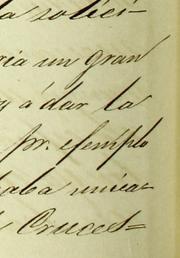 a solici-
ria un gran
y á dar la
pr. efemplo
aba unica-
Cruces=